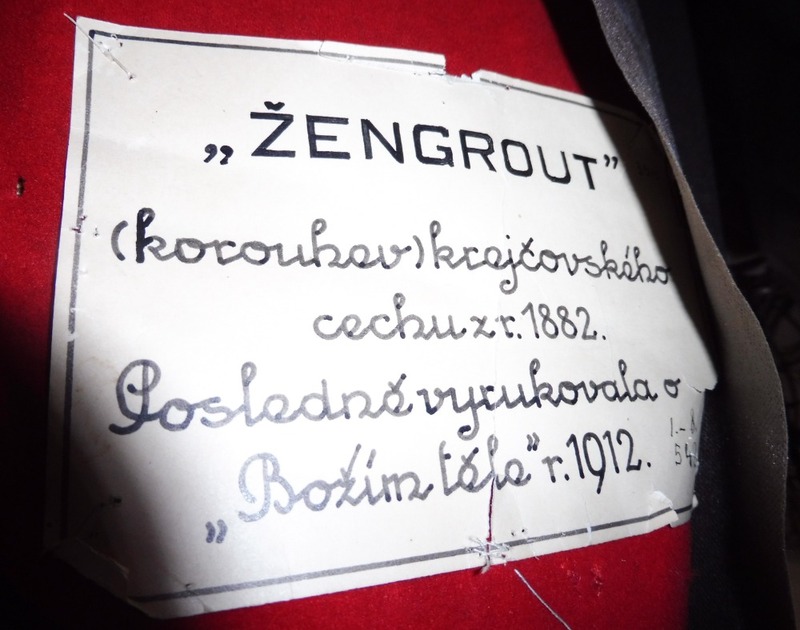 „ŽENGROUT”
(korouhev) krejčovského
cechu z r. 1882.
Posledně vyrukovala o
„Božím těle” r. 1912.